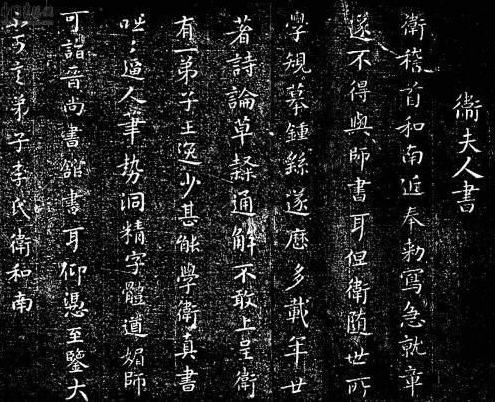 衛夫人書
衛稽首和南近奉勅寫急就章
遂不得與師書耳但衛随世所
學規摹鍾繇遂歷多載年廿
著詩論草隸通解不敢上呈衛
有一弟子王逸少甚能學衛真書
咄咄逼人筆势洞精字體遒媚師
可詣晉尚書舘書耳仰憑至鑒大
不可言弟子李氏衛和南